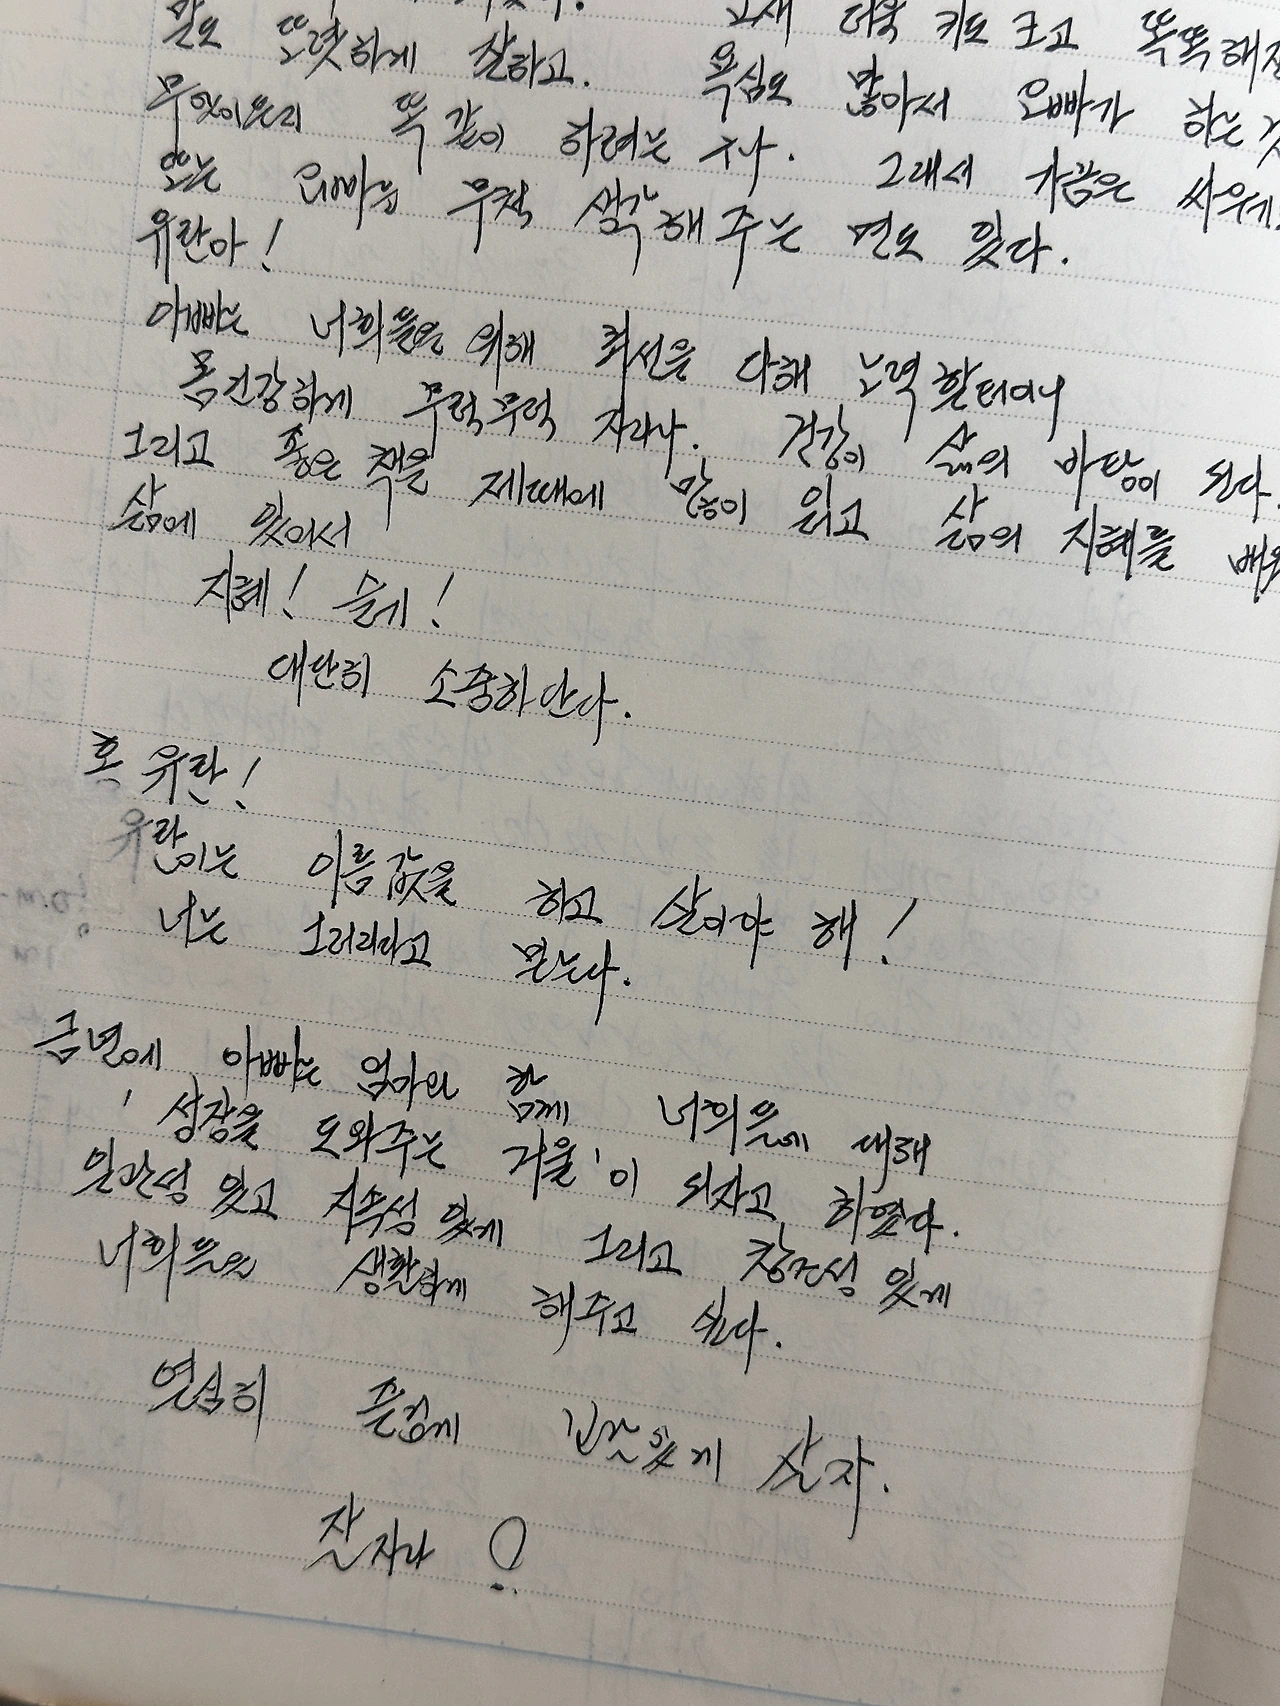 그새 더욱 키도 크고 똑똑해
말도 또렷하게 잘하고. 욕심도 많아서 오빠가 하는
무엇이든지 똑같이 하려는 구나. 그래서 가끔은 싸우게
또는 오빠를 무척 생각해 주는 면도 있다.
유란아!
아빠는 너희들을 위해 최선을 다해 노력할터이니
몸건강하게 무럭무럭 자라나. 건강이 삶의 바탕이 된다.
그리고 좋은 책을 제때에 많이 읽고 삶의 지혜를
삶에 있어서
지혜! 슬기!
대단히 소중하단다.
혼 유란!
유란이는 이름값을 하고 살아야 해!
너는 그러리라고 믿는다.
금년에 아빠는 엄마와 함께 너희들에 대해
'성장을 도와주는 거울'이 되자고 하였다.
일관성 있고 지속성 있게 그리고 창조성 있게
너희들을 생활하게 해주고 싶다.
열심히 즐겁게 보람있게 살자.
잘 자라!